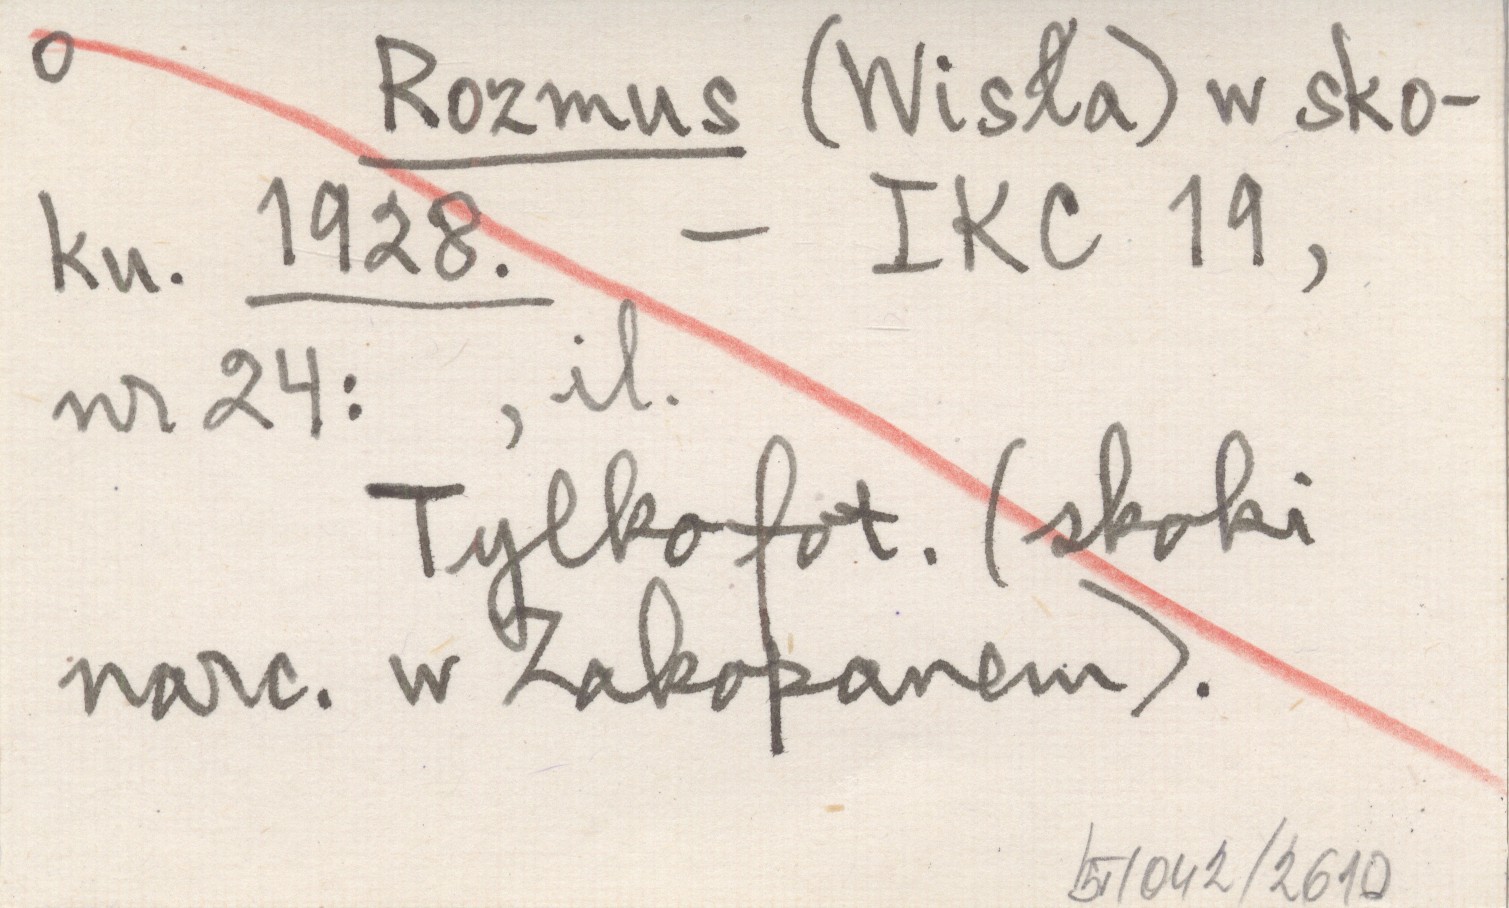 o Rozmus (Wisła) w sko-
ku. 1928. – IKC 19,
nr 24: , il.
Tylko fot. (skoki
narc. w Zakopanem).
/042/2610